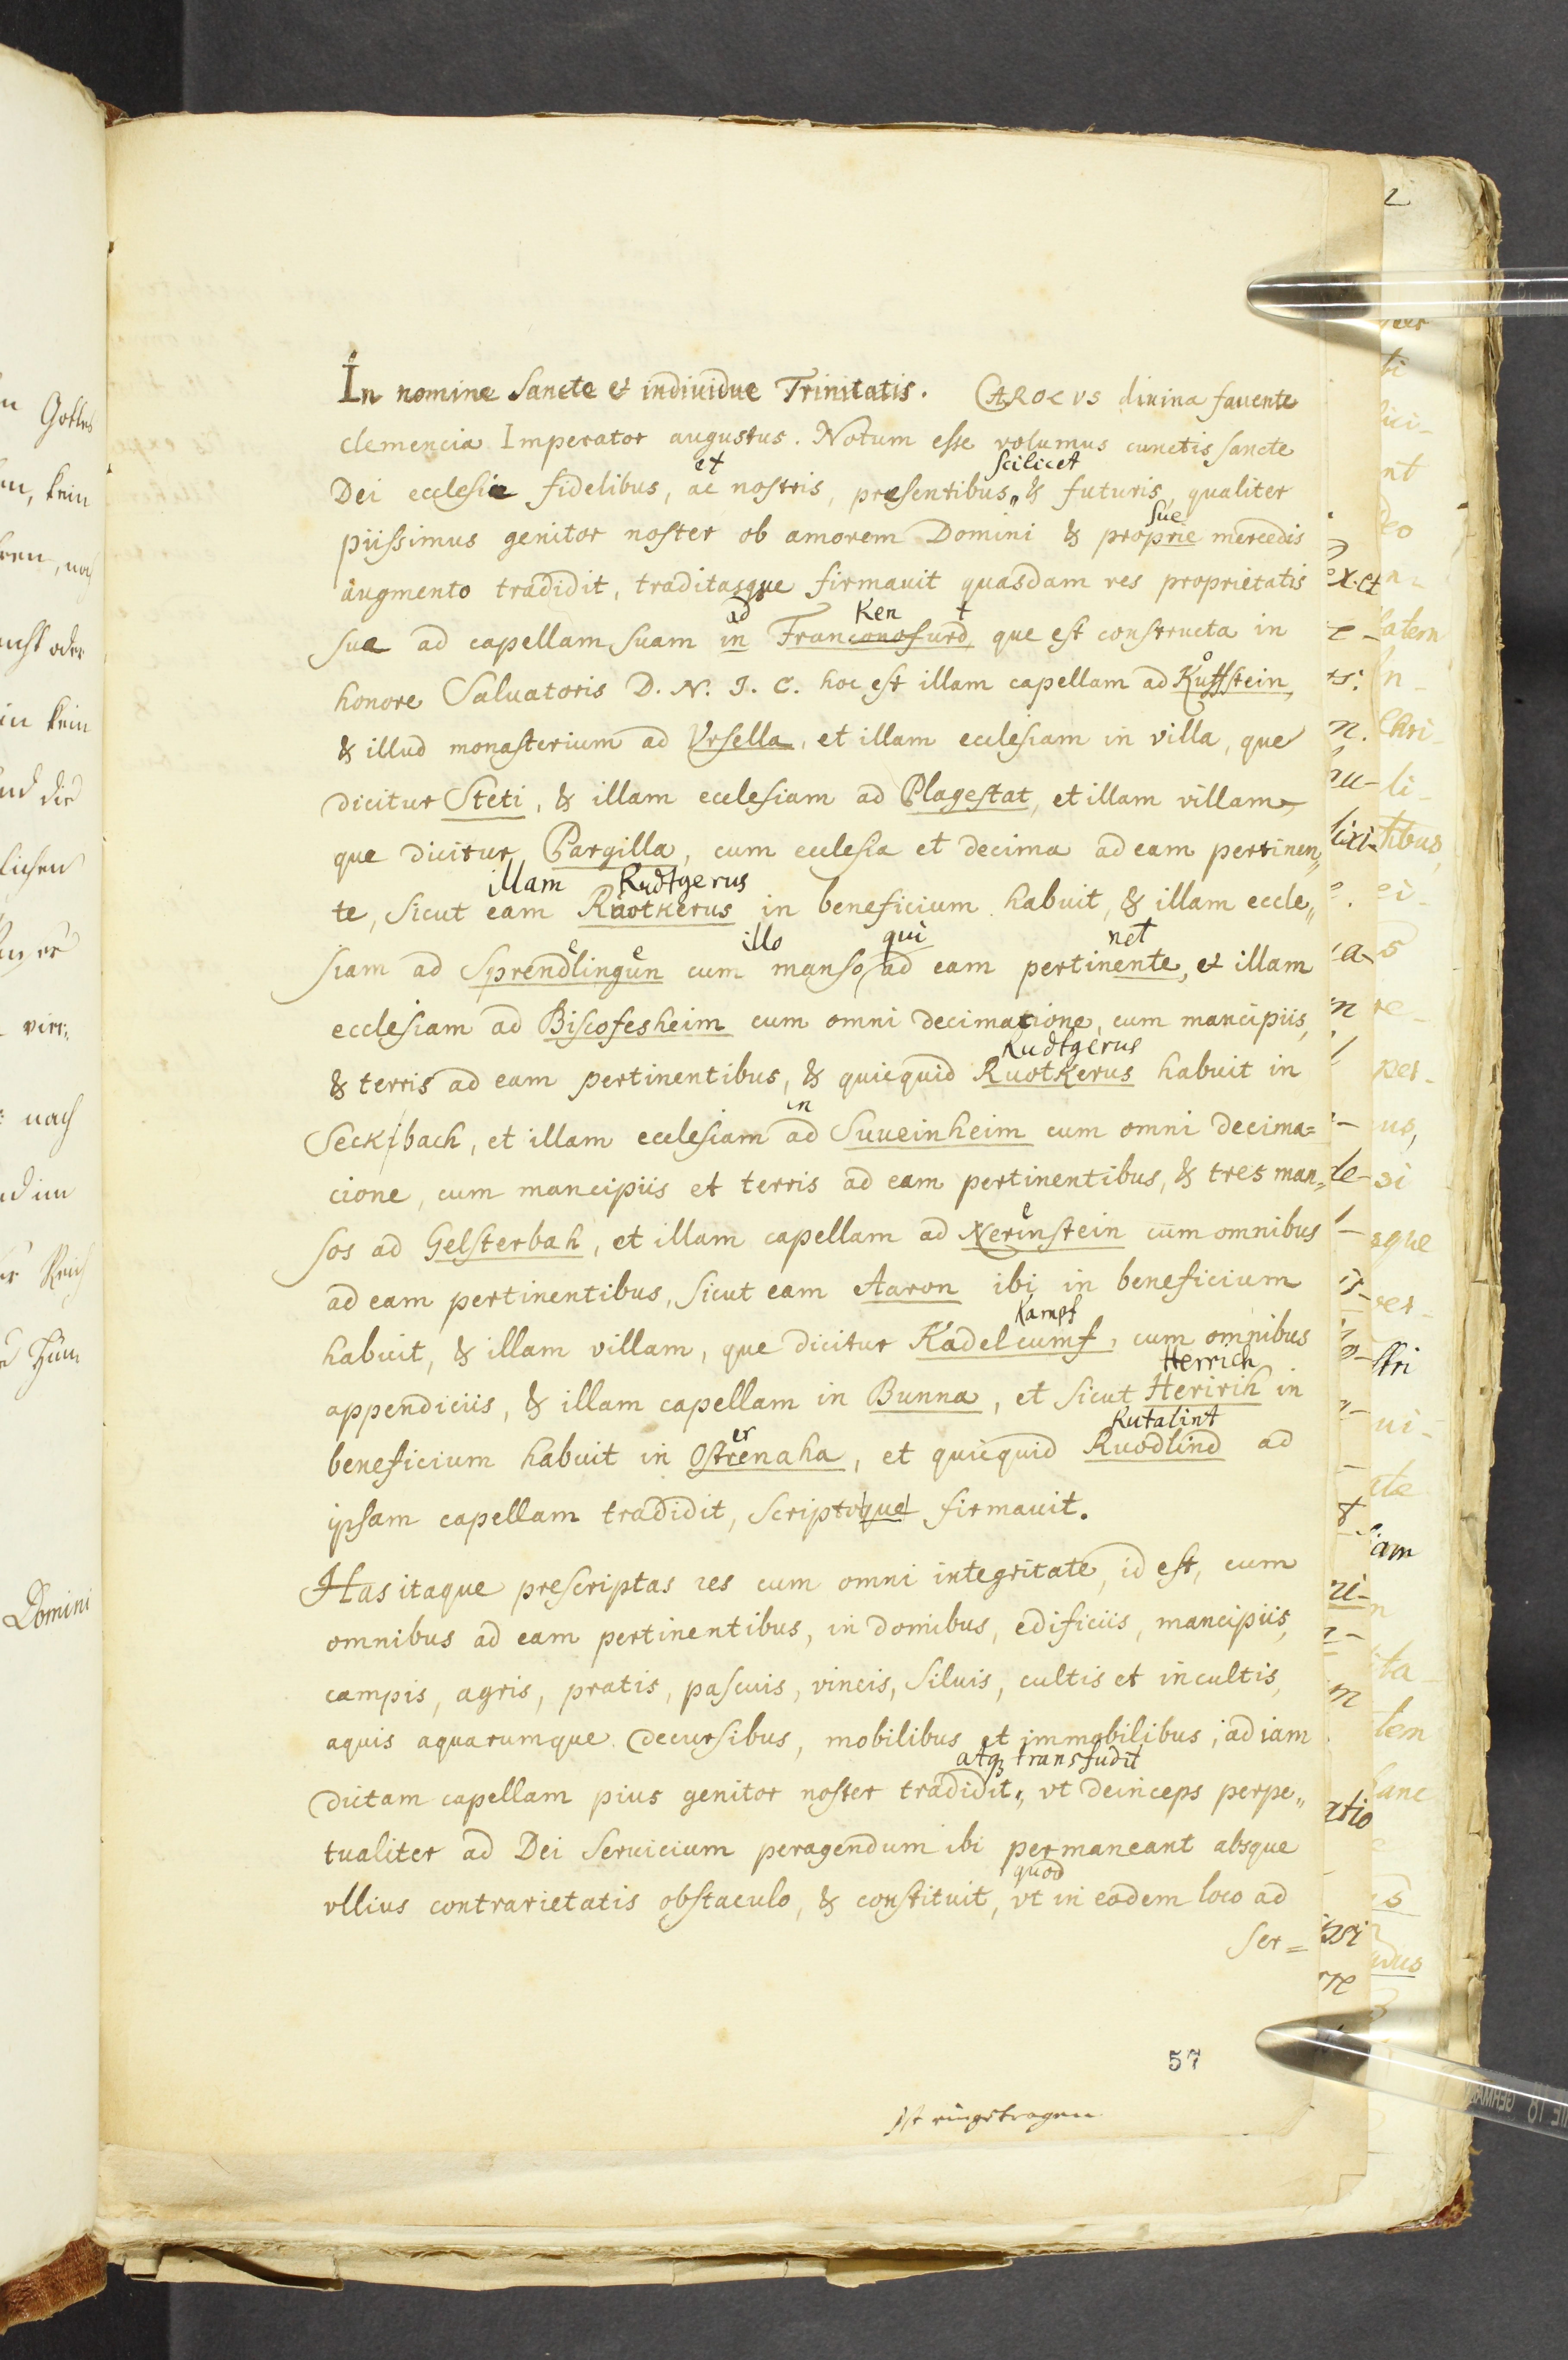 In nomine Sancte et individue Trinitatis. CAROLVS divina favente
clemencia Imperator augustus. Notum esse volumus cunctis sancte
et scilicet
Dei ecclesie fidelibus, ac nostris, presentibus„ & futuris, qualiter
sue
piissimus genitor noster ob amorem Domini & proprie mercedis
augmento tradidit, traditasque firmavit quasdam res proprietatis
ad Ken t
sue ad capellam suam in Franconofurd, que est constructa in
honore Salvatoris D. N. J. C. hoc est illam capellam ad Kuffstein,
& illud monasterium ad Vrsella, et illam ecclesiam in villa, que
dicitur Steti, & illam ecclesiam ad Plagestat, et illam villam,
que dicitur Pargilla, cum ecclesia et decima ad eam pertinen„
illam Rudtgerus
te, sicut eam Ruotkerus in beneficium habuit, & illam eccle„
e e illo qui net
siam ad Sprendlingun cum manso, ad eam pertinente, et illam
ecclesiam ad Biscofesheim cum omni decimatione, cum mancipiis,
Rudtgerus
& terris ad eam pertinentibus, & quicquid Ruotkerus habuit in
in
Seckibach, et illam ecclesiam ad Suueinheim cum omni decima=
cione, cum mancipiis et terris ad eam pertinentibus, & tres man„
e
sos ad Gelsterbah, et illam capellam ad Nerinstein cum omnibus
ad eam pertinentibus, sicut eam Aaron ibi in beneficium
Kampf
habuit, & illam villam, que dicitur Kadelcumf, cum omnibus
Herrich
appendiciis, & illam capellam in Bunna, et sicut Heririh in
er Rutalint
beneficium habuit in Ostrenaha, et quicquid Ruodlind ad
ipsam capellam tradidit, scriptoque firmavit.
Has itaque prescriptas res cum omni integritate, id est, cum
omnibus ad eam pertinentibus, in domibus, edificiis, mancipiis,
campis, agris, pratis, pascuis, vineis, silvis, cultis et incultis,
aquis aquarumque decursibus, mobilibus et immobilibus, ad iam
atq; transfudit
dictam capellam pius genitor noster tradidit„ vt deinceps perpe„
tualiter ad Dei servicium peragendum ibi permaneant absque
quod
vllius contrarietatis obstaculo, & constituit, vt in eodem loco ad
ser=
57
ist eingetragen